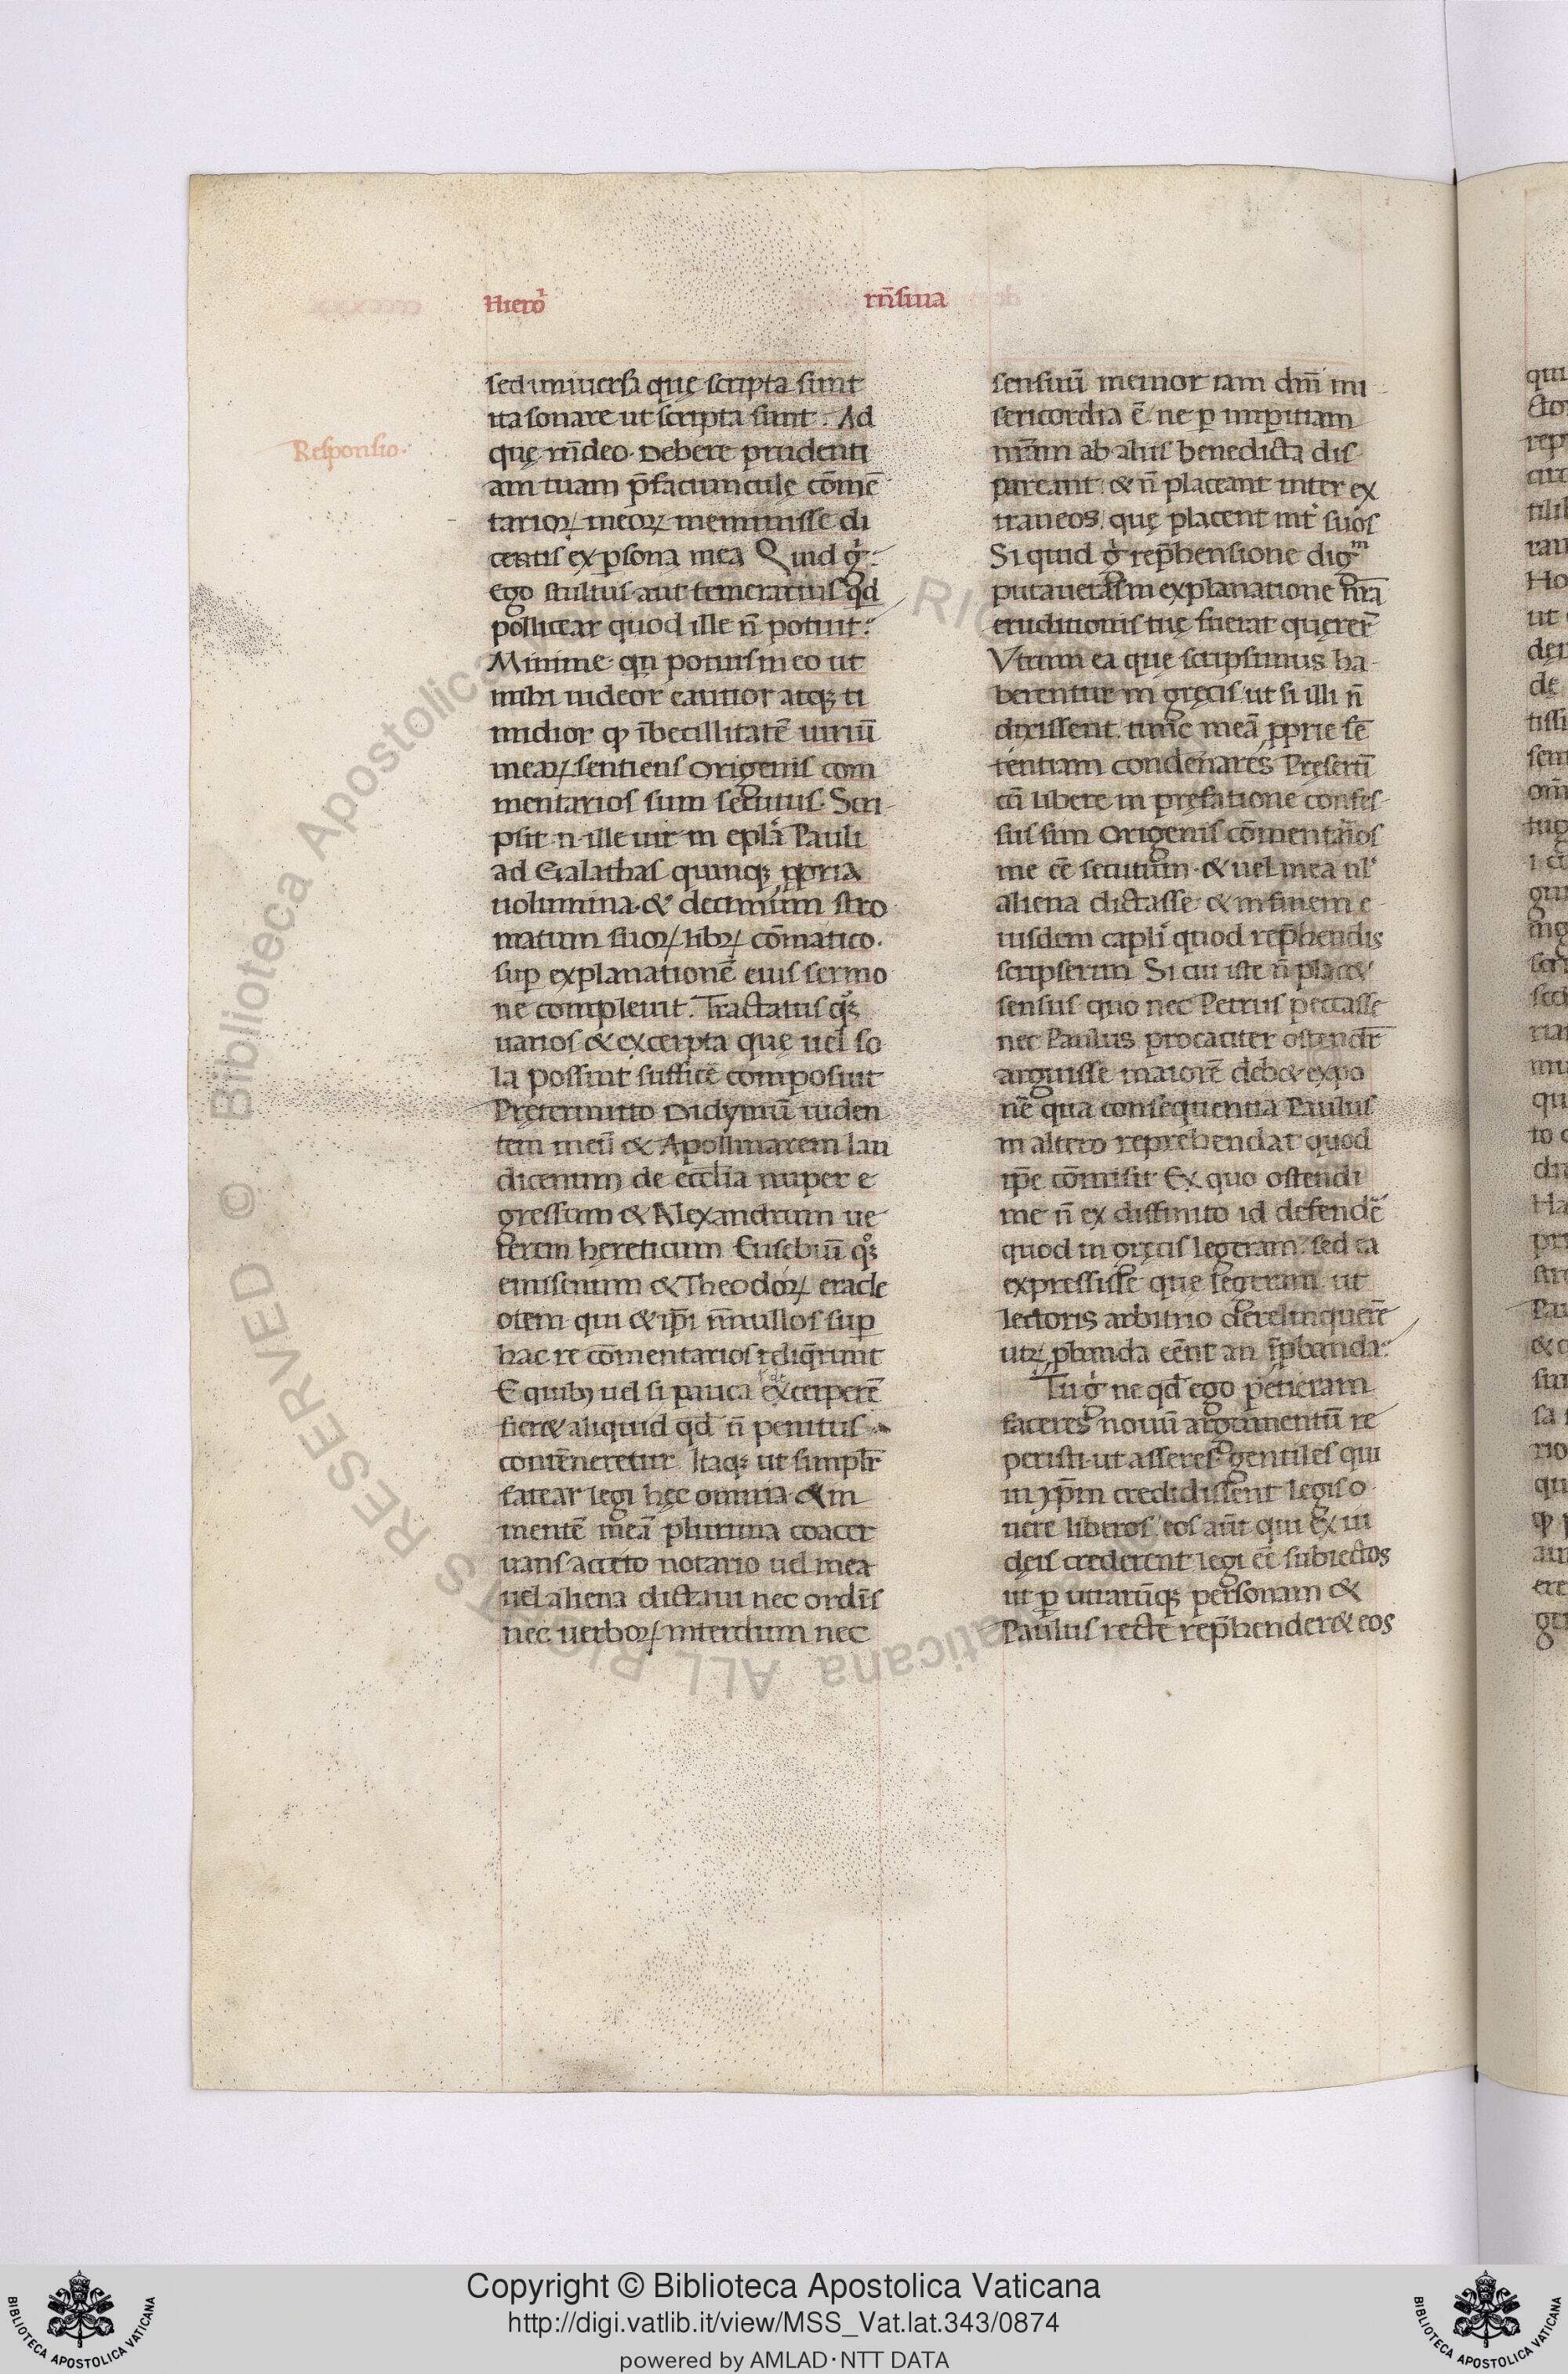 Hiero
rn̄siua
Responsio.
sed uniuersa quę scripta sunt
ita sonare ut scripta sunt. Ad
quę rn̄deo. Debere prudenti
am tuam p̄fatiunculę cōmē
tarioꝝ meoꝝ meminisse di
centis ex ꝑsona mea Quid g̊
ego stultus aut temerarius qd̄
pollicear quod ille n̄ potuit.
Minime. qn potius in eo ut
mihi uideor cautior atqꝫ ti
midior ꝙ ībecillitatē uiriū
mearꝝ sentiens Origenis com
mentarios sum secutus. Scri-
psit .n. ille uir in epl̄a Pauli
ad Galathas quinqꝫ ꝓpria
uolumina. & decimum stro
matum suoꝝ libꝝ cōmatico.
sup explanationē eius sermo
ne compleuit. Tractatus qͦꝫ
uarios & excerpta quę uel so
la possint sufficē composuit
Pretermitto Didymū uiden
tem meū & Apollinarem lau
dicenum de eccl̄ia nuper e
gressum & Alexandrum ue
terem hereticum Eusebiū qͦꝫ
emisenum & Theodoꝝ eracle
otem qui & ip̄i n̄nullos suꝑ
hac re cōmentarios reliq̄runt
E quibꝫ uel si pauca excerperē
fier& aliquid qd̄ n̄ penitus
contēneretur. Itaqꝫ ut simpl̄r
fatear legi hęc omnia. & in
mentē meā plurima coacer
uans accito notario uel mea
uel aliena dictaui nec ordīs
nec uerboꝝ interdum nec
sensuū memor iam dn̄i mi
sericordia ē. ne ꝑ impitiam
nr̄am ab aliis benedicta dis
pareant. & n̄ placeant inter ex
traneos quę placent int̄ suos
Si quid g̊ rep̄hensione digᵐ
putaueras in explanatione nr̄a
eruditionis tuę fuerat quęrer̄
Vtrum ea que scripsimus ha-
berentur in gręcis ut si illi n̄
dixissent. tunc meā ꝓprie sē
tentiam condēnares Presertī
cū libere in prefatione confes-
sus sim Origenis cōmentarios
me ēē secutum. & uel mea ul̄
aliena dictasse. & in finem e
iusdem capl̄i quod rep̄hendis
scripserim Si cui iste n̄ plac&
sensus quo nec Petrus peccasse
nec Paulus procaciter ostendit̄
arguisse maiorē deb& expo
nē qua consequentia Paulus
in altero reprehendat quod
ip̄e cōmisit Ex quo ostendi
me n̄ ex diffinito id defendē
quod in gręcis legeram. sed ea
expressisse que legeram ut
lectoris arbitrio derelinquerē
utꝝ ꝓbanda eēnt an īꝓbanda.
Tu g̊ ne qd̄ ego petieram
faceres nouū argumentū re
peristi. ut asseres gentiles qui
in xp̄m credidissent legis o
nere liberos. eos aūt qui ex iu
deis crederent legi eē subiectos
ut ꝑ utrarūqꝫ personam &
Paulus recte rep̄hender& eos
© Biblioteca Apostolica Vaticana ALL RIGHTS RESERVED
Copyright © Biblioteca Apostolica Vaticana
http://digi.vatlib.it/view/MSS_Vat.lat.343/0874
powered by AMLAD·NTT DATA
BIBLIOTECA APOSTOLICA VATICANA
BIBLIOTECA APOSTOLICA VATICANA